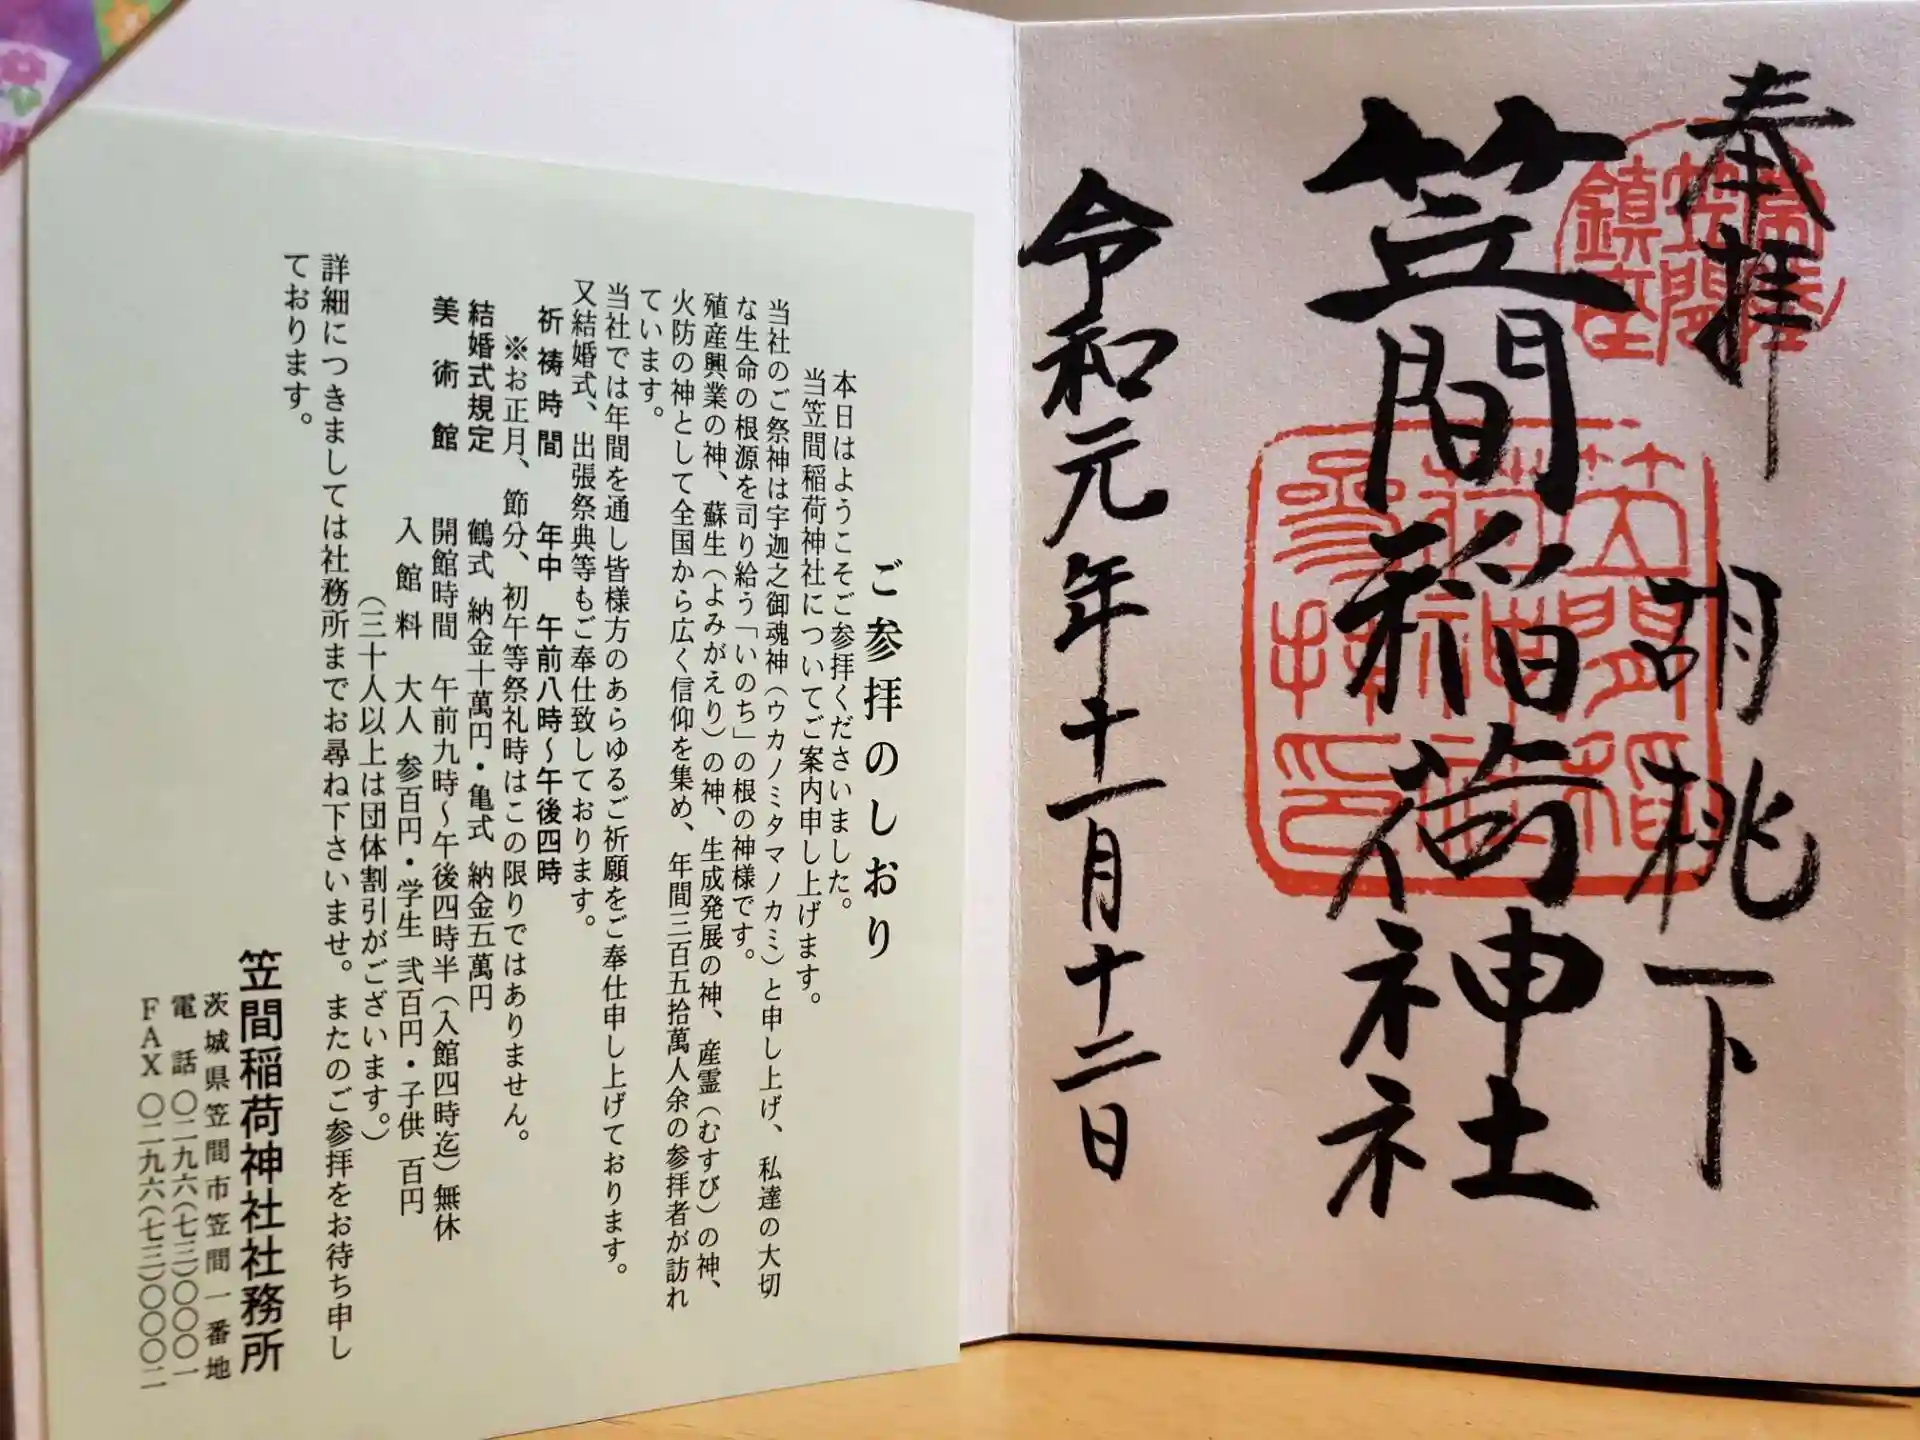 奉拝
胡桃下
笠間稲荷神社
令和元年十一月十二日
笠間稲
荷神社
参拝印
ご参拝のしおり
本日はようこそご参拝くださいました。
当笠間稲荷神社についてご案内申し上げます。
当社のご祭神は宇迦之御魂神（ウカノミタマノカミ）と申し上げ、私達の大切
な生命の根源を司り給う「いのち」の根の神様です。
殖産興業の神、蘇生（よみがえり）の神、生成発展の神、産霊（むすび）の神、
火防の神として全国から広く信仰を集め、年間三百五拾萬人余の参拝者が訪れ
ています。
当社では年間を通し皆様方のあらゆるご祈願をご奉仕申し上げております。
又結婚式、出張祭典等もご奉仕致しております。
祈祷時間 年中 午前八時～午後四時
※お正月、節分、初午等祭礼時はこの限りではありません。
結婚式規定 鶴式 納金十萬円・亀式 納金五萬円
美術館 開館時間 午前九時～午後四時半（入館四時迄）無休
入館料 大人 参百円・学生 弐百円・子供 百円
（三十人以上は団体割引がございます。）
詳細につきましては社務所までお尋ね下さいませ。またのご参拝をお待ち申し
ております。
笠間稲荷神社社務所
茨城県笠間市笠間一番地
電話〇二九六（七三）〇〇〇一
FAX〇二九六（七三）〇〇〇二